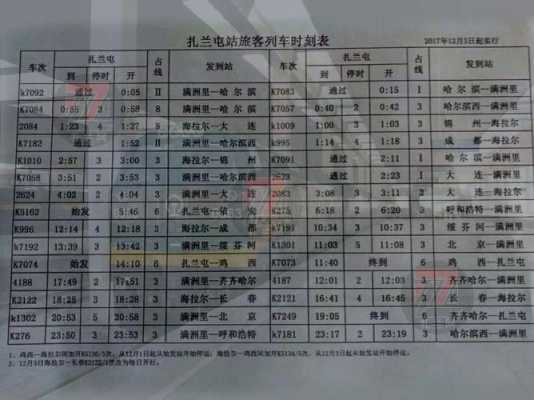 扎兰屯站旅客列车时刻表
2017年12月5日起实行
车次 扎兰屯 占线 发到站 车次 扎兰屯 占线 发到站
到 停时 开 到 停时 开
k7092 通过 0:05 II 满洲里—哈尔滨 K7083 通过 0:15 I 哈尔滨—满洲里
K7084 0:55 3 0:58 8 满洲里—哈尔滨 K7057 0:40 2 0:42 3 哈尔滨西—满洲里
2084 1:23 4 1:27 8 海拉尔—大连 k1009 1:00 3 1:03 3 锦州—海拉尔
K7182 通过 1:52 II 满洲里—哈尔滨西 k995 1:14 4 1:18 3 成都—海拉尔
K1010 2:57 3 3:00 3 海拉尔—锦州 K7091 通过 2:11 I 哈尔滨—满洲里
K7058 3:51 2 3:53 3 满洲里—哈尔滨西 2623 通过 I 大连—满洲里
2624 4:02 2 4:04 3 满洲里—大连 2083 3:08 3 3:11 2 大连—海拉尔
K5162 始发 5:46 6 扎兰屯— K275 6:18 2 6:20 3 呼和浩特—满洲里
K996 12:14 4 12:18 3 海拉尔—成都 k7191 10:34 3 10:37 3 绥芬河—满洲里
k7192 13:39 3 13:42 3 满洲里—绥芬河 K1301 11:03 5 11:08 3 北京—满洲里
K7074 始发 14:10 6 扎兰屯—鸡西 K7073 11:40 终到 6 鸡西—扎兰屯
4188 17:49 2 17:51 3 满洲里—齐齐哈尔 4187 12:01 2 12:03 3 齐齐哈尔—满洲里
K2122 18:25 3 18:28 3 海拉尔—长春 K2121 16:41 4 16:45 3 长春—海拉尔
k1302 20:53 5 20:58 3 满洲里—北京 K7249 19:05 终到 6 齐齐哈尔—扎兰屯
K276 23:50 3 23:53 3 满洲里—呼和浩特 k7181 23:17 2 23:19 3 哈尔滨西—满洲里